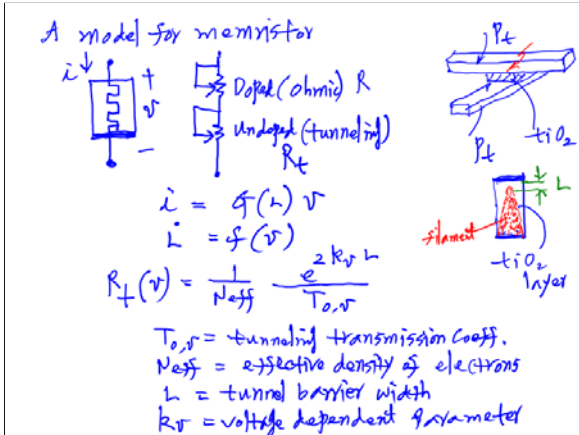 A model for memristor
i
+
v
-
Doped (ohmic) R
Undoped (tunneling)
Rt
Pt
Pt
tiO2
i = G(L) v
L̇ = f(v)
L
filament
tiO2
layer
Rt(v) = 1/Neff e^{2 kv L}/T0,v
T0,v = tunneling transmission coeff.
Neff = effective density of electrons
L = tunnel barrier width
kv = voltage dependent parameter